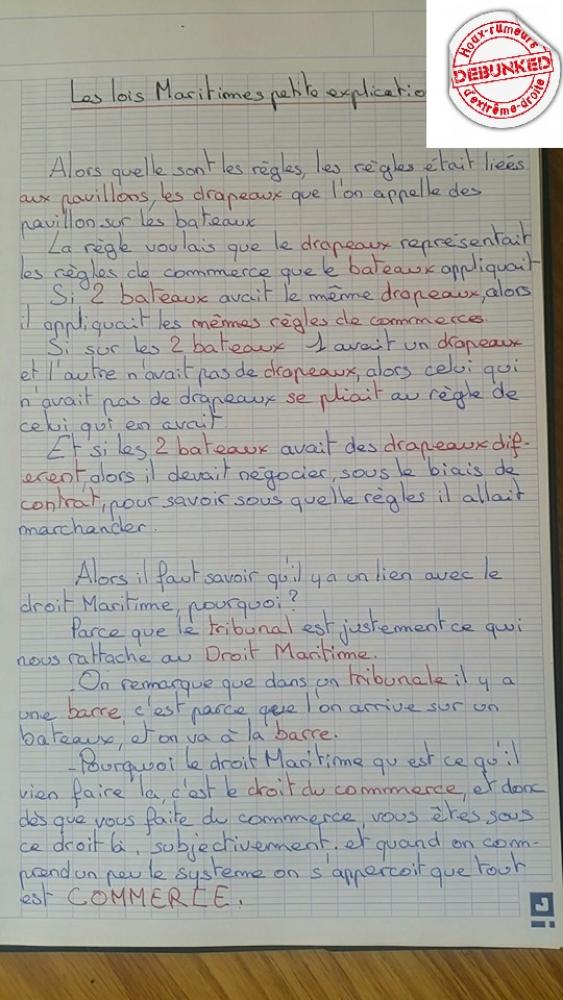 Hoax-rumeurs
DEBUNKED
d'extrême-droite
Les lois Maritimes petite explicatio
Alors quelle sont les règles, les règles était liées
aux pavillons, les drapeaux que l'on appelle des
pavillon sur les bateaux
La règle voulais que le drapeaux représentait
les règles de commerce que le bateaux appliquait
Si 2 bateaux avait le même drapeaux, alors
il appliquait les mêmes règles de commerces.
Si sur les 2 bateaux 1 avait un drapeaux
et l'autre n'avait pas de drapeaux, alors celui qui
n'avait pas de drapeaux se pliait au règle de
celui qui en avait.
Et si les 2 bateaux avait des drapeaux dif-
erent, alors il devait négocier, sous le biais de
contrat, pour savoir sous quelle règles il allait
marchander.
Alors il faut savoir qu'il y a un lien avec le
droit Maritime, pourquoi?
Parce que le tribunal est justement ce qui
nous rattache au Droit Maritime.
On remarque que dans un tribunale il y a
une barre, c'est parce que l'on arrive sur un
bateaux, et on va à la barre.
-Pourquoi le droit Maritime qu est ce qu'il
vien faire la, c'est le droit du commerce, et donc
dès que vous faite du commerce, vous êtes sous
ce droit là, subjectivement, et quand on com-
prend un peu le systeme on s'apperçoit que tout
est COMMERCE.